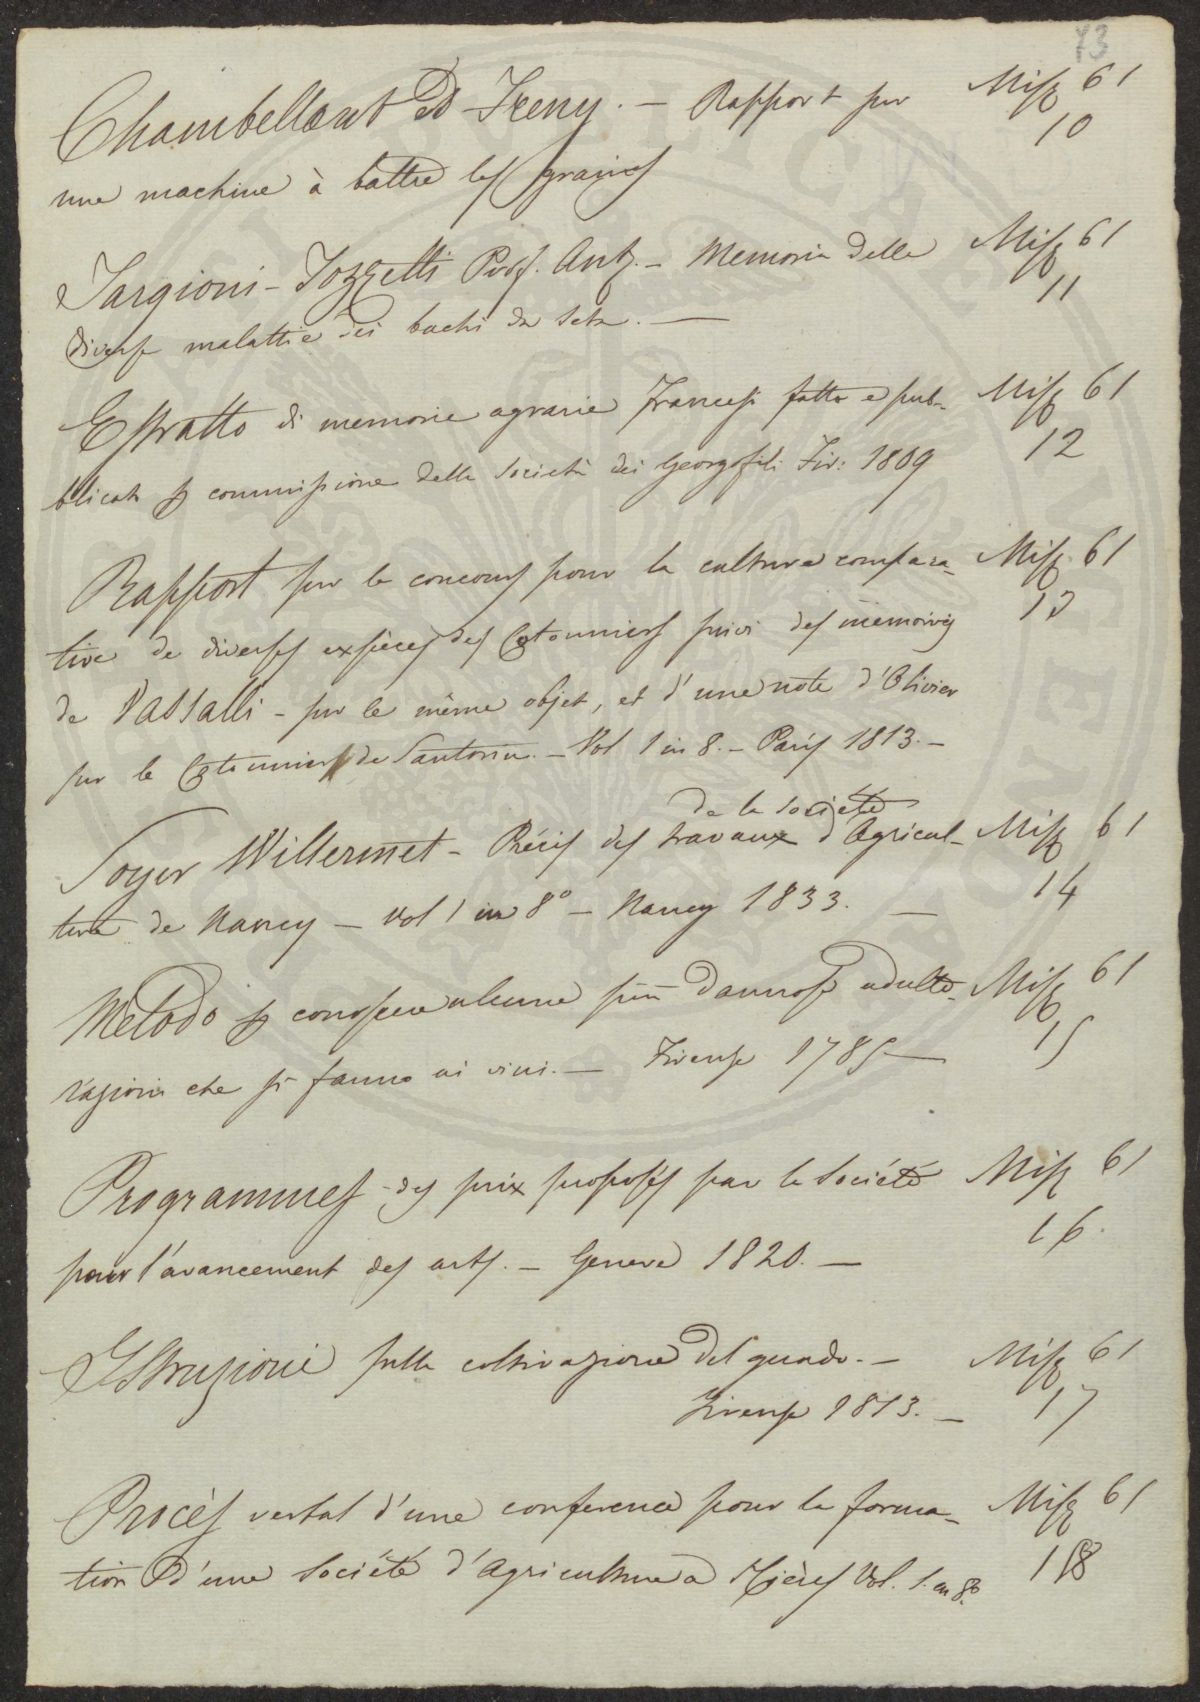 73
Chambellant et Freny. — Rapport sur Misz 61
une machine à battre les graines 10
Targioni-Tozzetti Prof. Ant. — Memoria delle Misz 61
diverse malattie dei bachi da seta. — 11
Estratto di memorie agrarie francesi fatto e pub- Misz 61
blicato p commissione della Società dei Georgofili Fir: 1809 12
Rapport sur le concours pour la culture compara- Misz 61
tive de diverses expèces des Cotonniers suivi des mémoires 13
de Vassalli - sur le même objet, et d'une note d'Olivier
sur le Cotonnier de Santorin. — Vol 1 in 8. — Paris 1813. —
de la Société
Soyer Willermet — Précis des travaux d'Agricul- Misz 61
ture de Nancy — Vol 1 in 8° — Nancy 1833. — 14
Metodo p conoscere alcune più dannose adulte- Misz 61
razioni che si fanno ai vini. — Firenze 1785 — 15
Programmes des prix proposés par la Société Misz 61
pour l'avancement des arts. — Geneve 1820. — 16.
Istruzioni sulla coltivazione del guado. — Misz 61
Firenze 1813. — 17
Procès verbal d'une conference pour la forma- Misz 61
tion d'une Société d'Agriculture a Vol. 1. in 8° 18